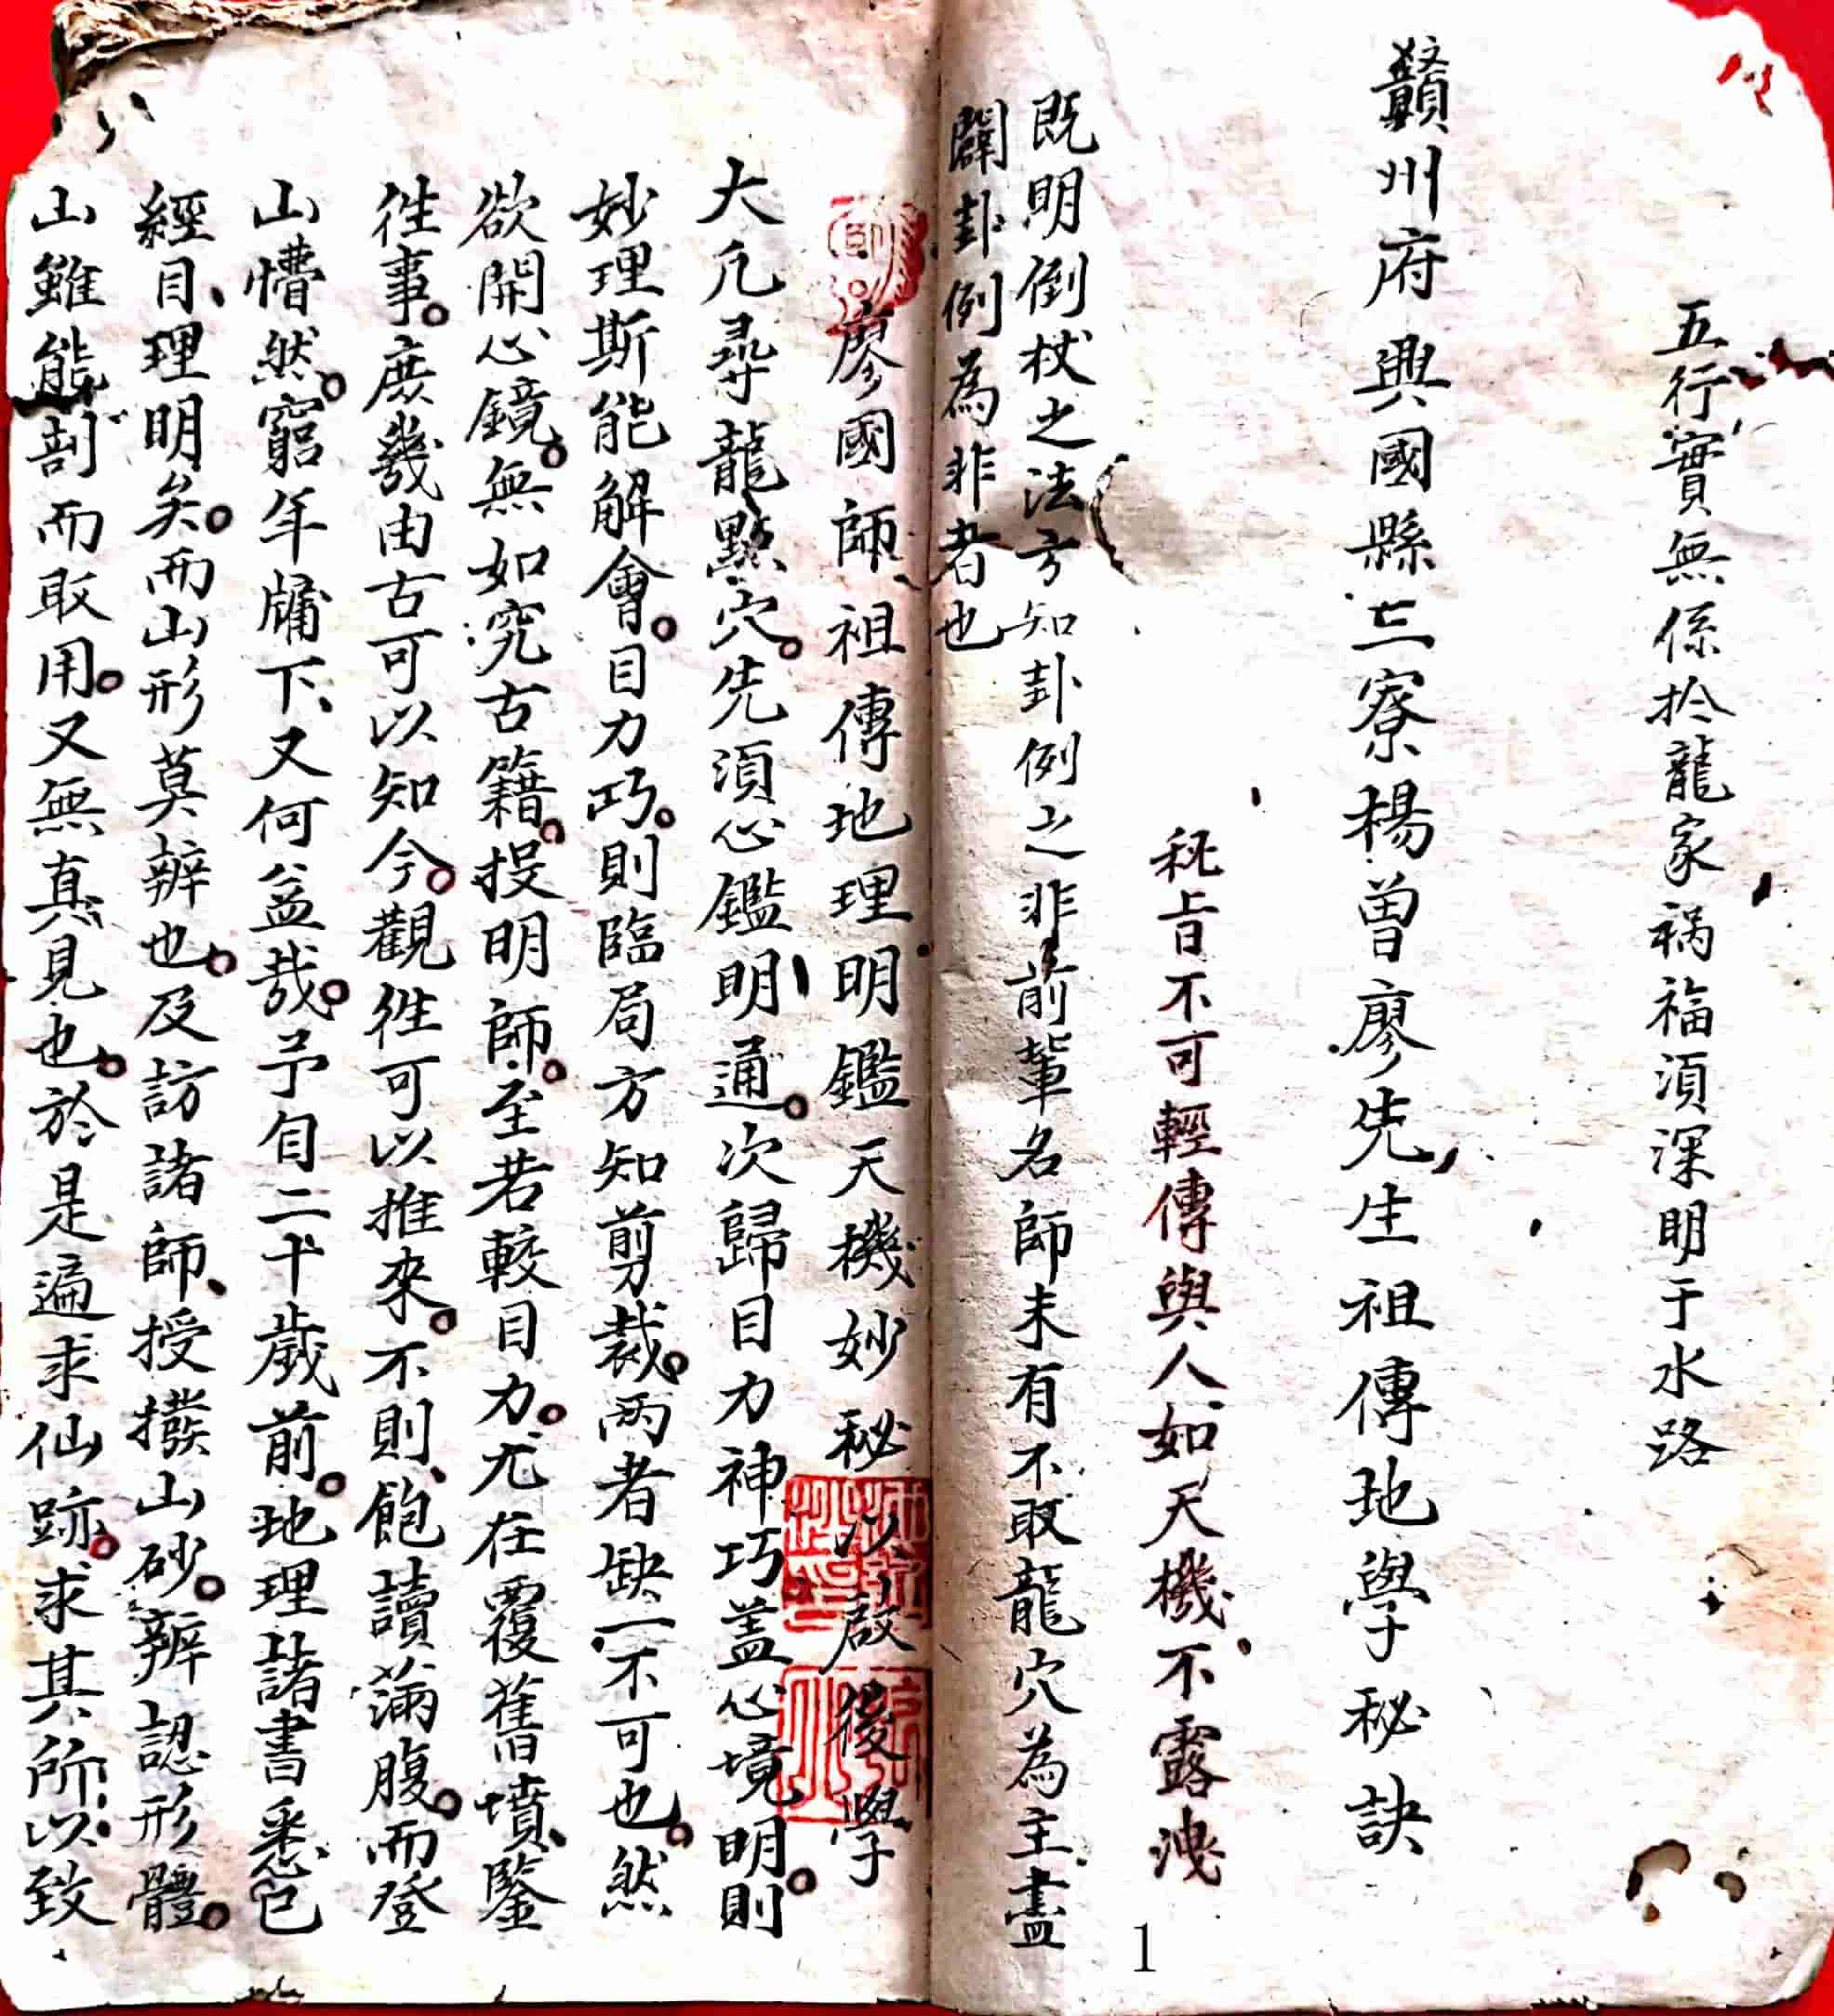 五行實無係於龍家禍福須深明于水路
贛州府興國縣三寮楊曾廖先生祖傳地學秘訣
秘旨不可輕傳與人如天機不露洩
既明倒杖之法方知卦例之非前輩名師未有不取龍穴為主盡
闢卦例為非者也
廖國師祖傳地理明鑑天機妙秘以啟後學
大凡尋龍點穴。先須心鑑明通。次歸目力神巧蓋心境明。則
妙理斯能解會。目力巧。則臨局方知剪裁。兩者缺一不可也。然
欲開心鏡。無如究古籍。投明師。至若較目力。尤在覆舊墳、鑒
徃事。庶幾由古可以知今。觀徃可以推來。不則、飽讀滿腹。而登
山懵然。窮年牖下、又何益哉。予自二十歲前。地理諸書悉已
經目、理明矣。而山形莫辨也。及訪諸師、授撥山砂。辨認形體。
山雖能剖而取用。又無真見也。於是遍求仙跡。求其所以致
1